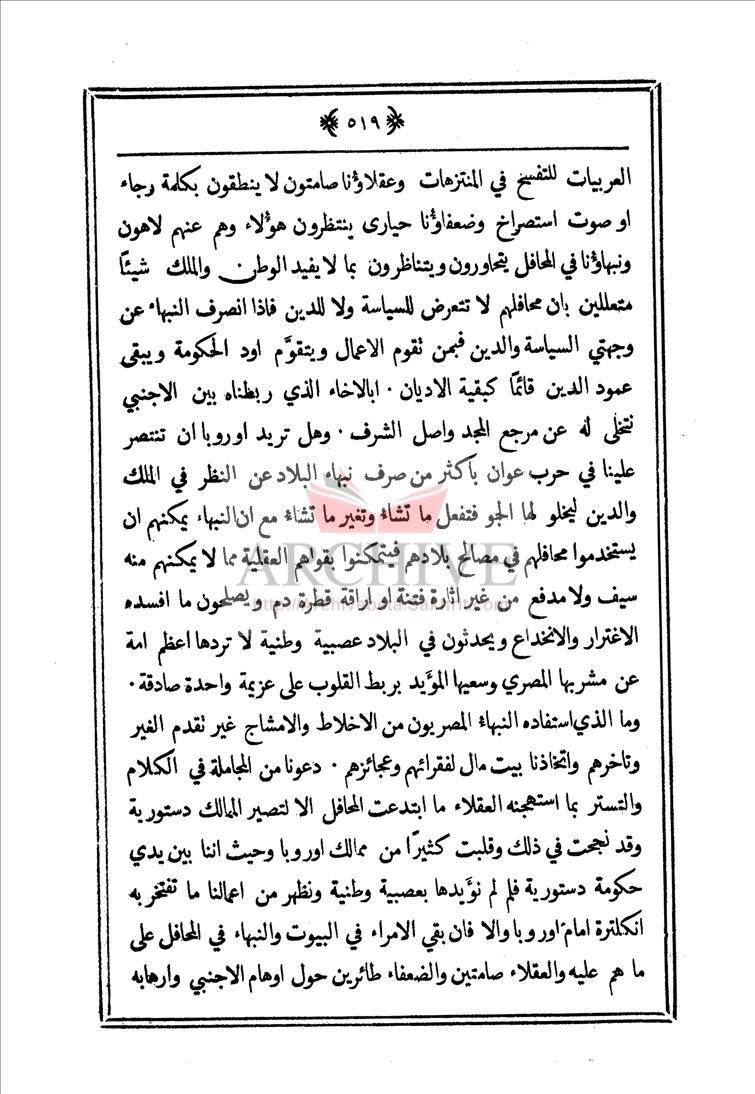 ﴿ ٥١٩ ﴾
العربيات للتفسح في المنتزهات وعقلاؤنا صامتون لا ينطقون بكلمة رجاء
او صوت استصراخ وضعفاؤنا حيارى ينتظرون هؤلاء وهم عنهم لاهون
ونبهاؤنا في المحافل يتحاورون ويتناظرون بما لا يفيد الوطن والملك شيئًا
متعللين بان محافلهم لا تتعرض للسياسة ولا للدين فاذا انصرف النبهاء عن
وجهتي السياسة والدين فبمن تقوم الاعمال ويتقوَّم اود الحكومة ويبقى
عمود الدين قائمًا كبقية الاديان ٠ ابالاخاء الذي ربطناه بين الاجنبي
نتخلى له عن مرجع المجد واصل الشرف ٠ وهل تريد اوروبا ان تنتصر
علينا في حرب عوان باكثر من صرف نبهاء البلاد عن النظر في الملك
والدين ليخلو لها الجو فتفعل ما تشاء وتغير ما تشاء مع ان النبهاء يمكنهم ان
يستخدموا محافلهم في مصالح بلادهم فيتمكنوا بقواهم العقلية مما لا يمكنهم منه
سيف ولا مدفع من غير اثارة فتنة او اراقة قطرة دم ويصلحون ما افسده
الاغترار والانخداع ويحدثون في البلاد عصبية وطنية لا تردها اعظم امة
عن مشربها المصري وسعيها المؤيد بربط القلوب على عزيمة واحدة صادقة ٠
وما الذي استفاده النبهاء المصريون من الاخلاط والامشاج غير تقدم الغير
وتاخرهم واتخاذنا بيت مال لفقرائهم وعجائزهم ٠ دعونا من المجاملة في الكلام
والتستر بما استهجنه العقلاء ما ابتدعت المحافل الا لتصير الممالك دستورية
وقد نجحت في ذلك وقلبت كثيرًا من ممالك اوروبا وحيث اننا بين يدي
حكومة دستورية فلم لم نؤيدها بعصبية وطنية ونظهر من اعمالنا ما تفتخر به
انكلترة امام اوروبا والا فان بقي الامراء في البيوت والنبهاء في المحافل على
ما هم عليه والعقلاء صامتين والضعفاء طائرين حول اوهام الاجنبي وارهابه
ARCHIVE